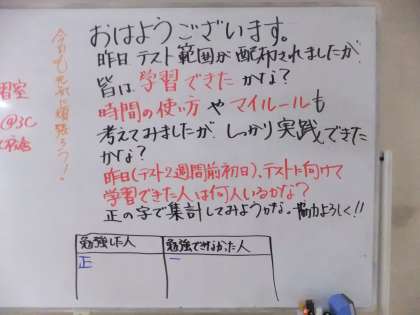 おはようございます。
昨日テスト範囲が配布されましたが
皆は学習できたかな？
時間の使い方やマイルールも
考えてみましたが、しっかり実践できた
かな？
昨日(テスト2週間前初日)、テストに向けて
学習できた人は何人いるかな？
正の字で集計してみようかな。協力よろしく!!
勉強した人
勉強できなかった人
正
一
今日も元気に頑張ろう！
習室